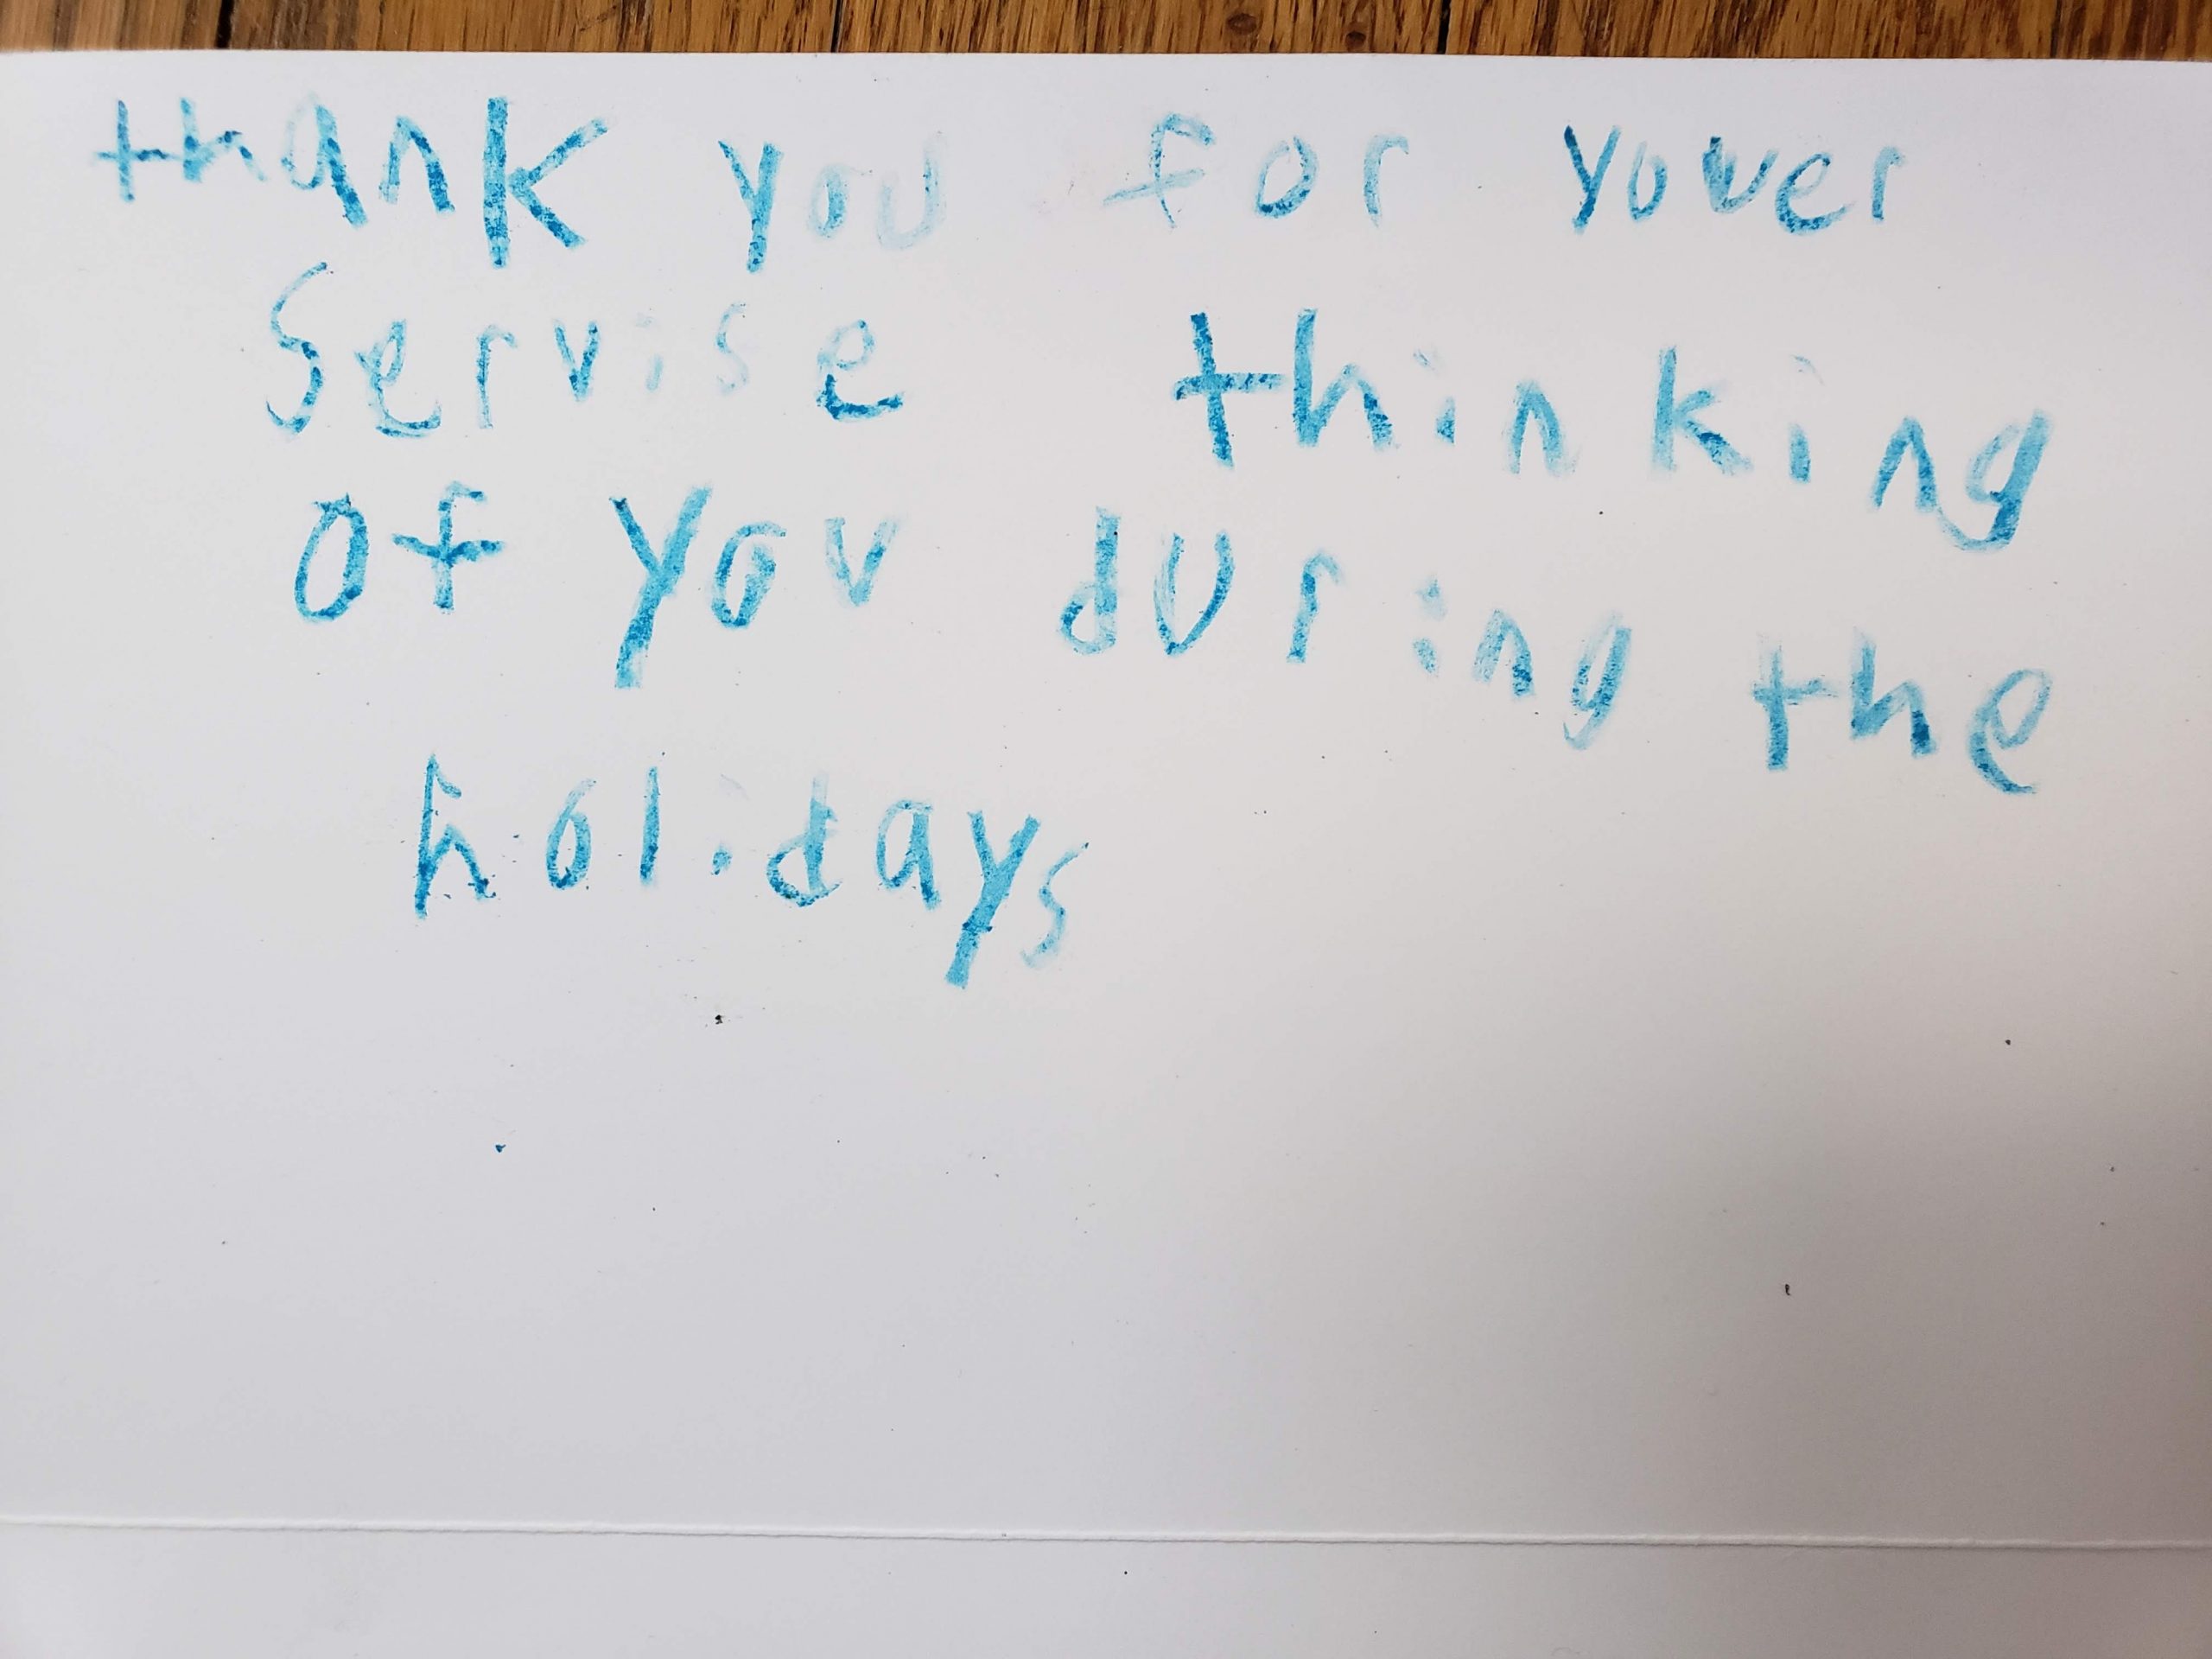 thank you for youer
Servise thinking
of you during the
holidays